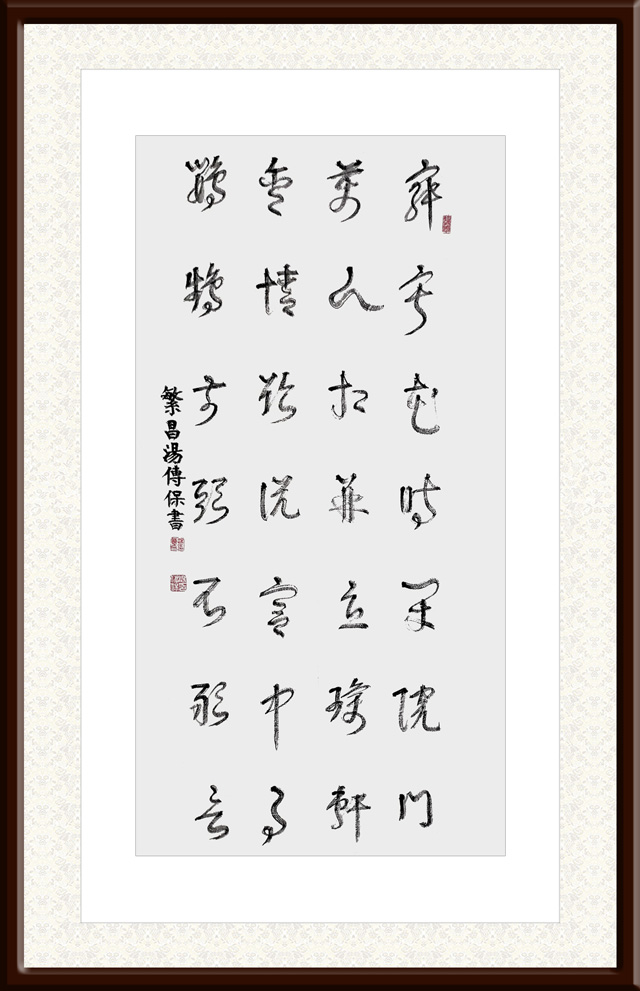 寂寂花時閉院門
美人相並立瓊軒
含情欲說宮中事
鸚鵡前頭不敢言
繁昌湯傳保書